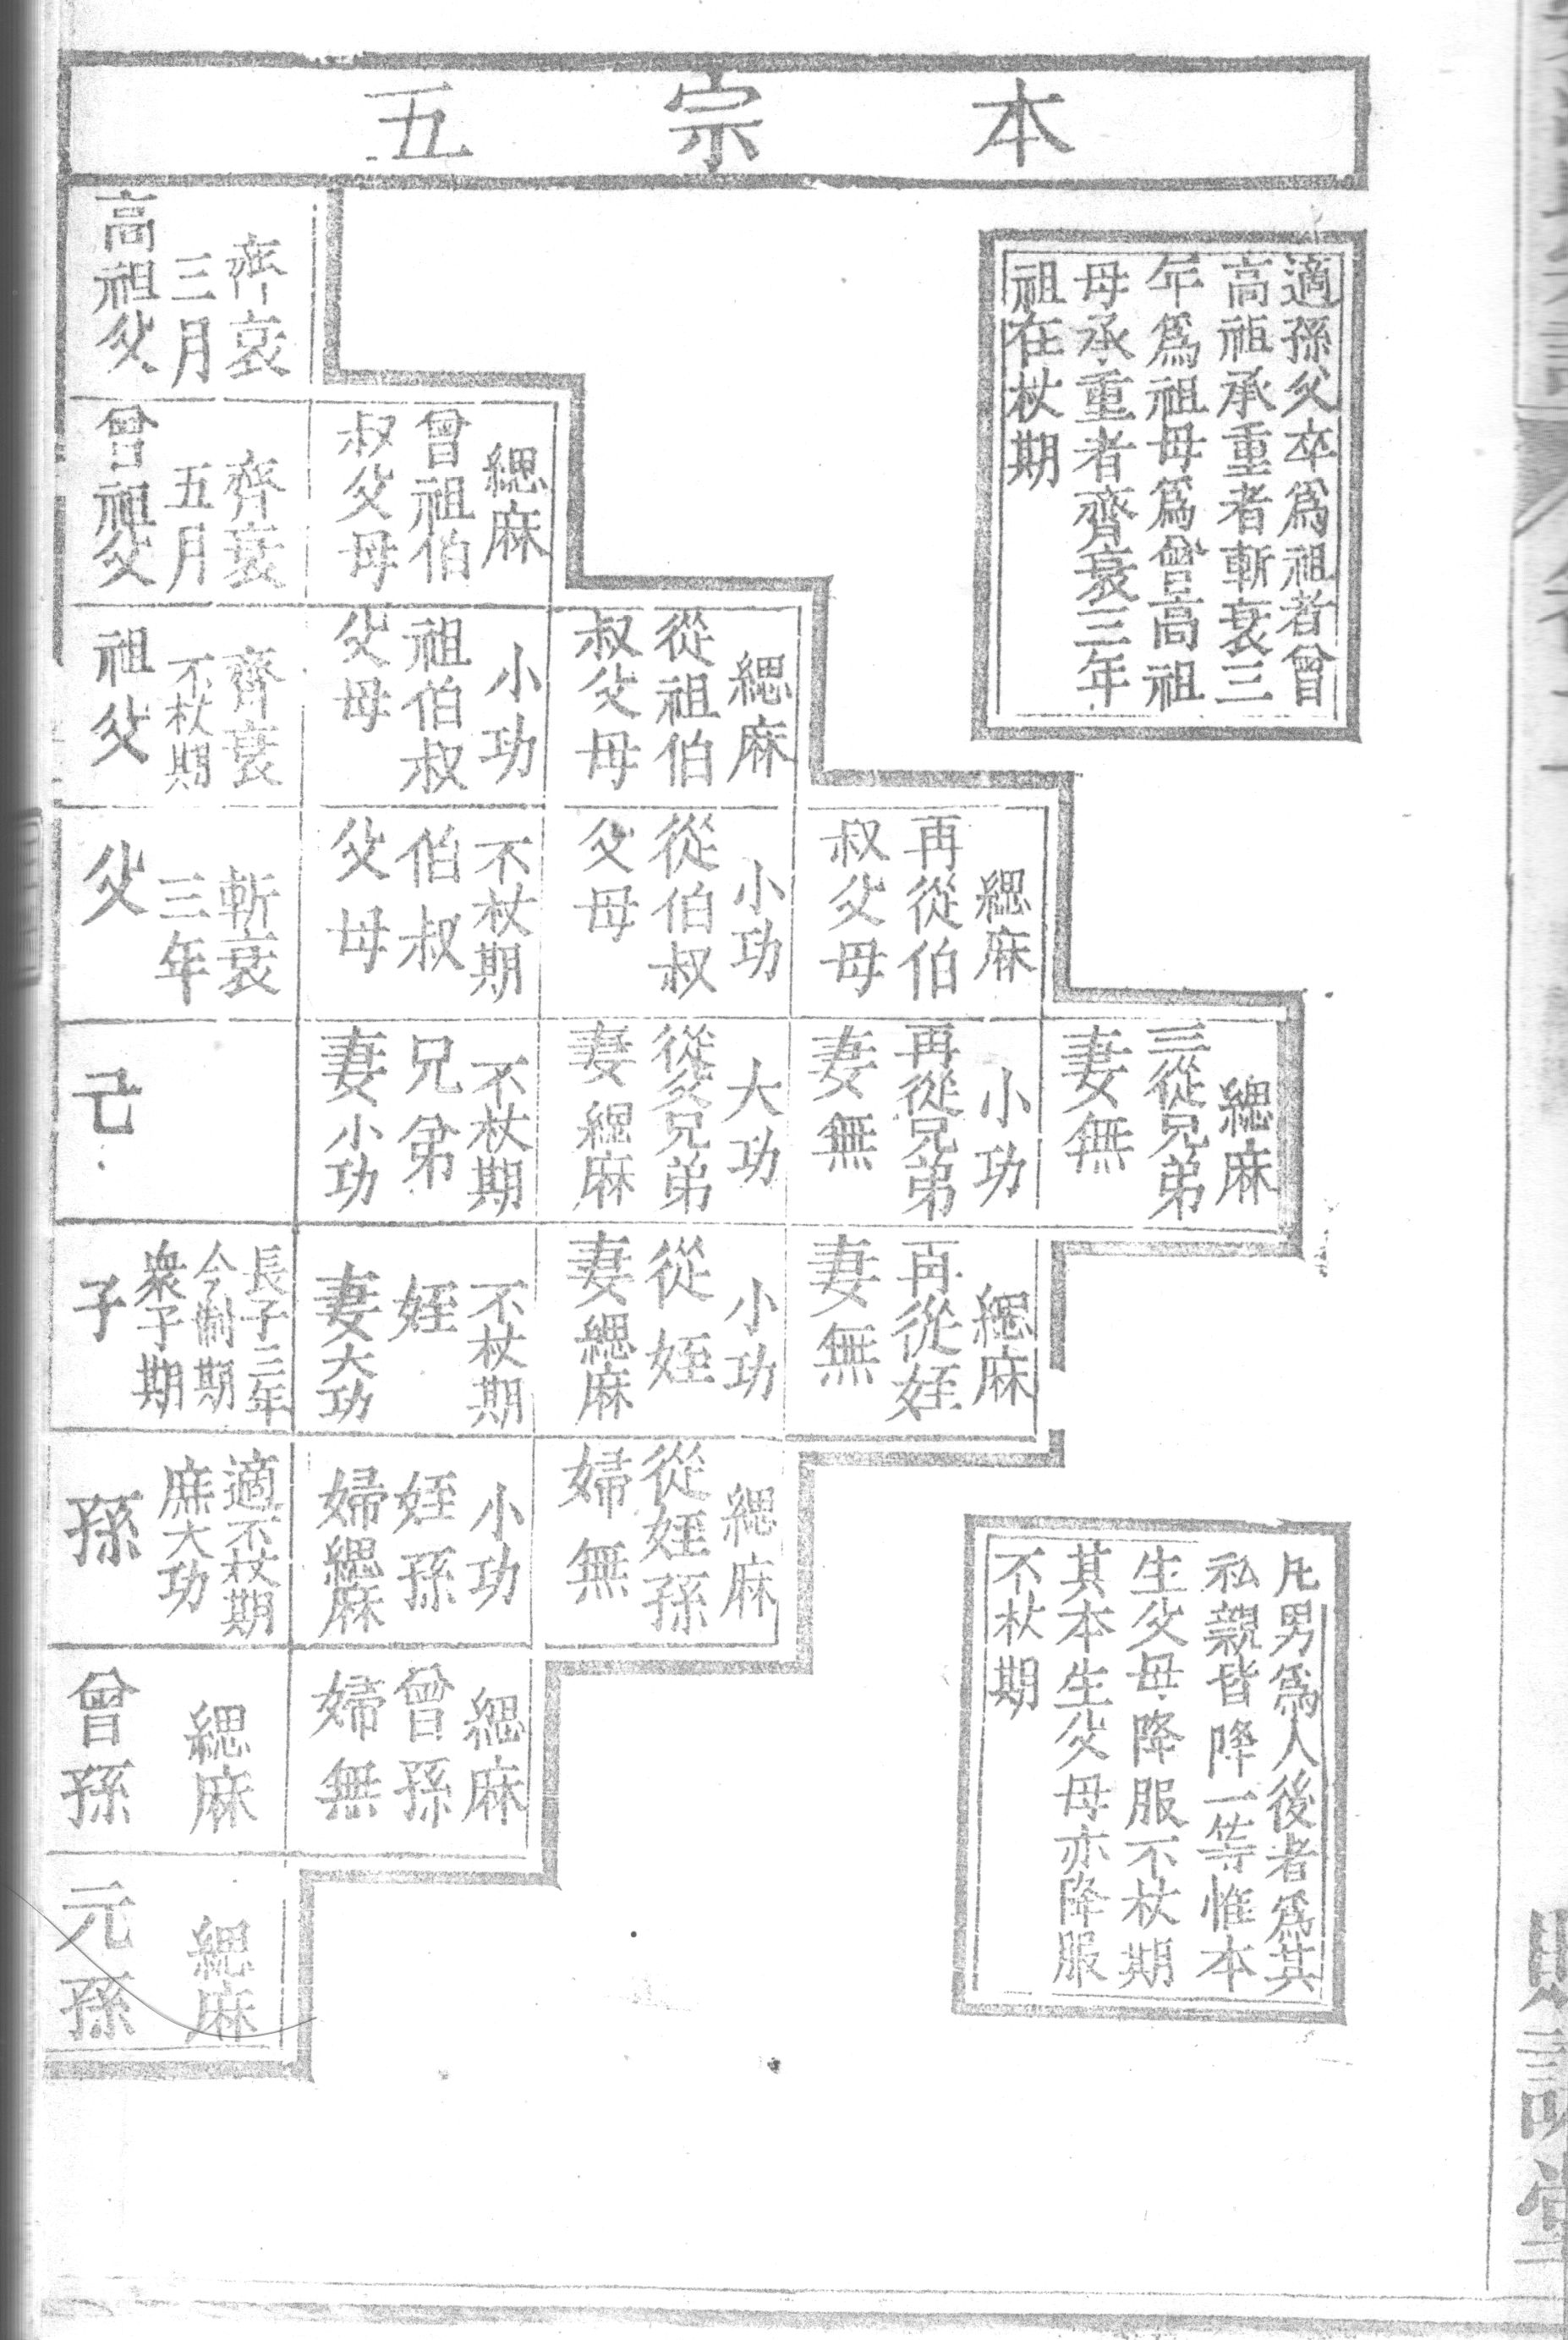 本宗五
適孫父卒爲祖者曾
高祖承重者斬衰三
年爲祖母爲曾高祖
母承重者齊衰三年
祖在杖期
齊衰
三月
高祖父
緦麻
曾祖伯
叔父母
齊衰
五月
曾祖父
緦麻
從祖伯
叔父母
小功
祖伯叔
父母
齊衰
不杖期
祖父
緦麻
再從伯
叔父母
小功
從伯叔
父母
不杖期
伯叔
父母
斬衰
三年
父
緦麻
三從兄弟
妻無
小功
再從兄弟
妻無
大功
從父兄弟
妻緦麻
不杖期
兄弟
妻小功
己
緦麻
再從姪
妻無
小功
從姪
妻緦麻
不杖期
姪
妻大功
長子三年
今制期
衆子期
子
緦麻
從姪孫
婦無
小功
姪孫
婦緦麻
適不杖期
庶大功
孫
緦麻
曾孫
婦無
緦麻
曾孫
緦麻
元孫
凡男爲人後者爲其
私親皆降一等惟本
生父母降服不杖期
其本生父母亦降服
不杖期